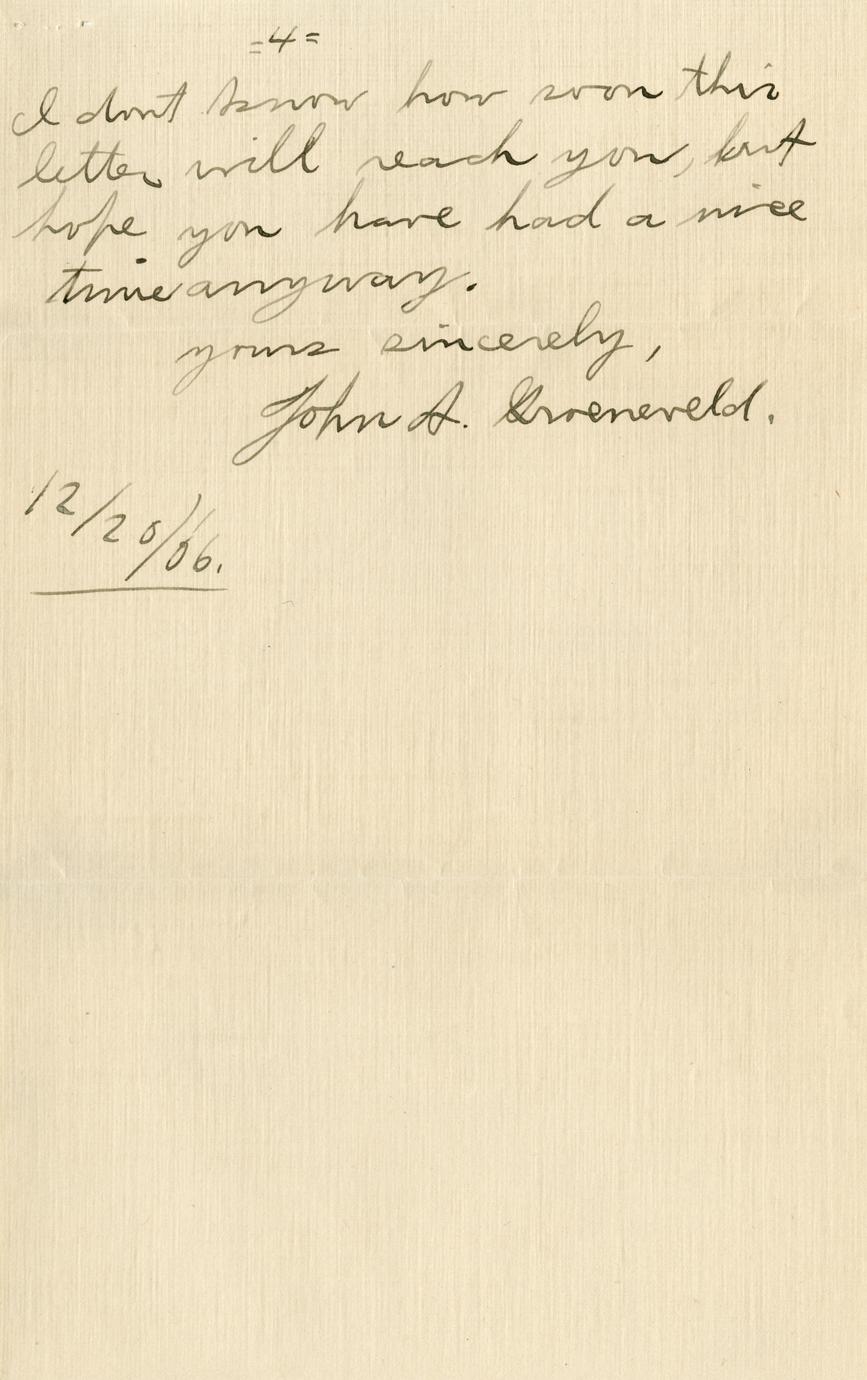 =4=
I dont know how soon this
letter will reach you, but
hope you have had a nice
time anyway.
yours sincerely,
John A. Groeneveld.
12/20/06.